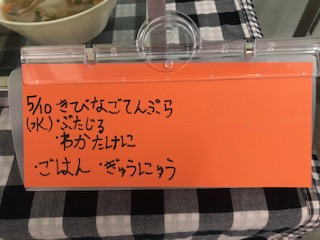 5/10 きびなごてんぷら
(水)・ぶたじる
・わかたけに
・ごはん ・ぎゅうにゅう